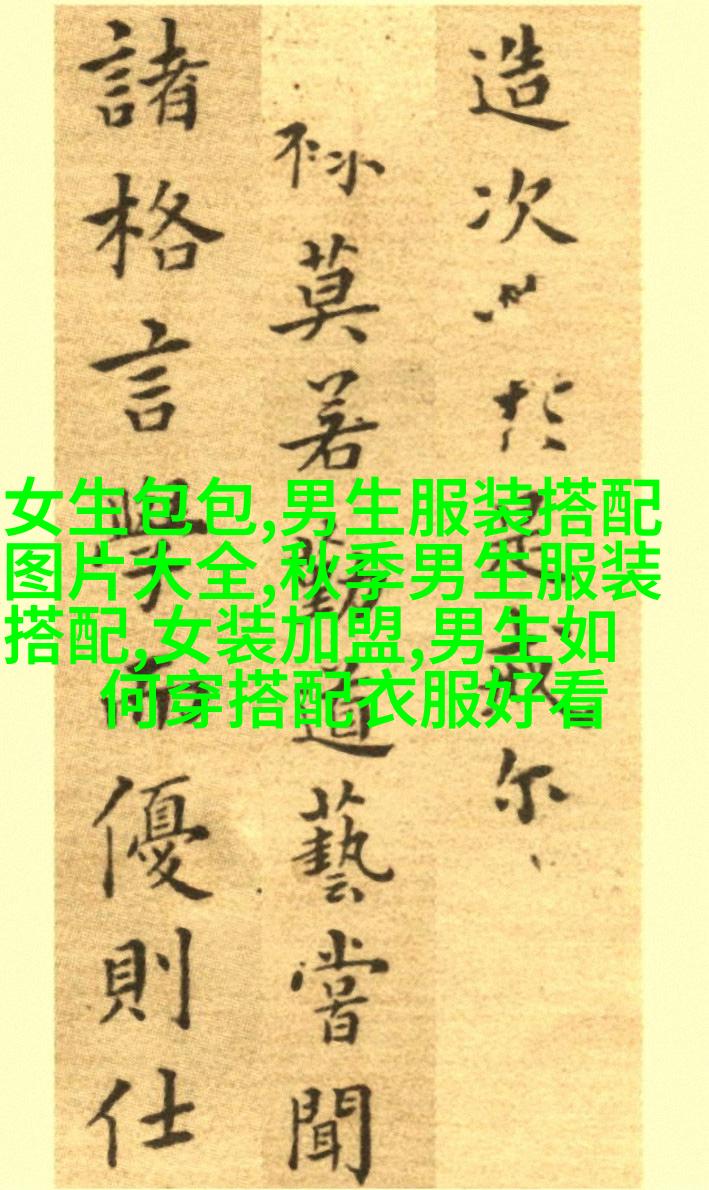 造次於是尔
不小莫若勤道藝嘗聞
諸格言學而優則仕
女生包包,男生服装搭配
图片大全,秋季男生服装
搭配,女装加盟,男生如
何穿搭配衣服好看